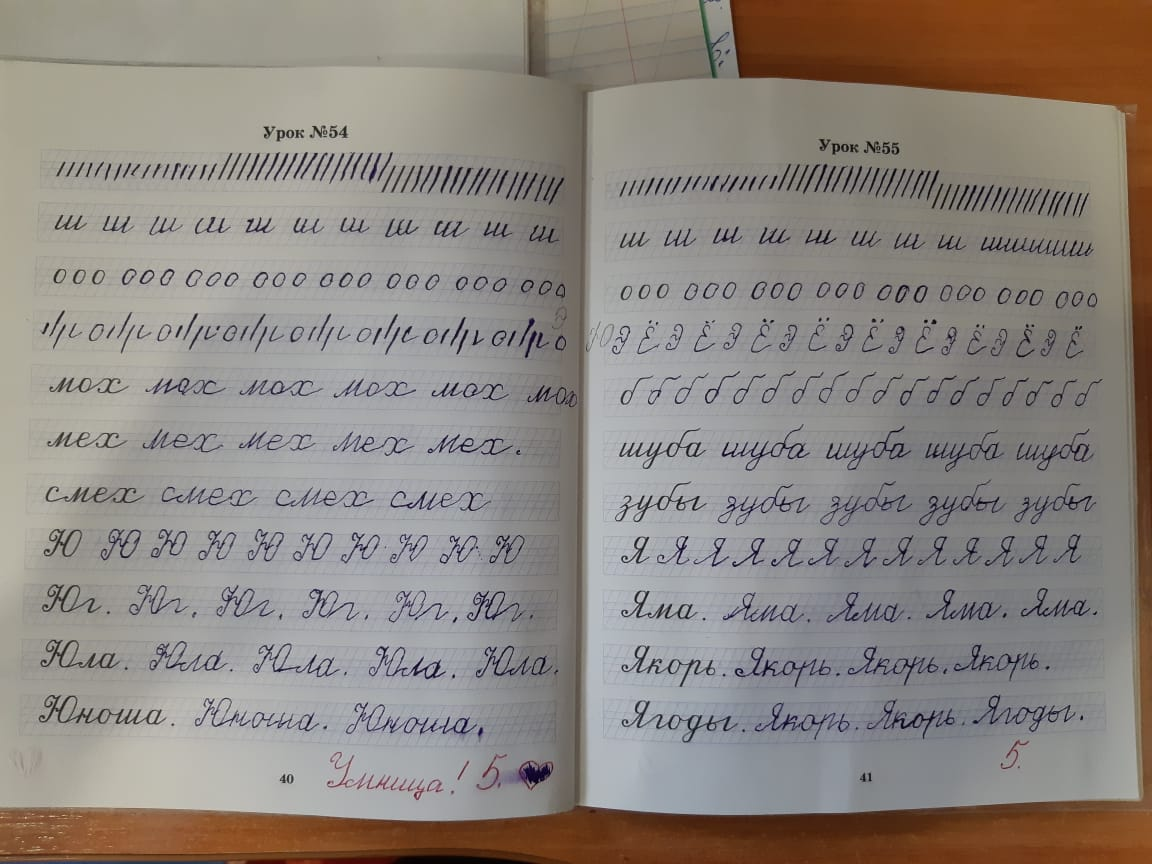 Урок №54
ш ш ш ш ш ш ш ш ш ш ш
ооо ооо ооо ооо ооо ооо ооо ооо
мох мох мох мох мох мох
мех мех мех мех мех.
смех смех смех смех
Ю Ю Ю Ю Ю Ю Ю Ю Ю Ю
Юг. Юг. Юг. Юг. Юг. Юг.
Юла. Юла. Юла. Юла. Юла.
Юноша. Юноша. Юноша.
40
Умница! 5.
Урок №55
ш ш ш ш ш ш ш ш шшшшш
ооо ооо ооо ооо ооо ооо ооо ооо
Э Ё Э Ё Э Ё Э Ё Э Ё Э Ё Э Ё Э Ё Э Ё
б б б б б б б б б б б б б б б б б
шуба шуба шуба шуба шуба
зубы зубы зубы зубы зубы
Я Я Я Я Я Я Я Я Я Я Я Я Я
Яма. Яма. Яма. Яма. Яма.
Якорь. Якорь. Якорь. Якорь.
Ягоды. Якорь. Якорь. Ягоды.
5.
41